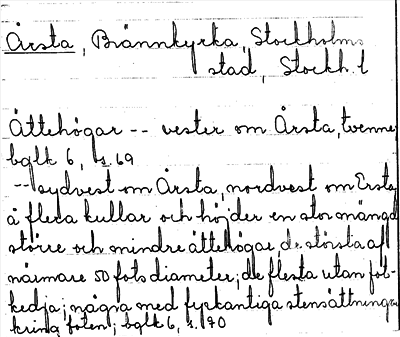 Årsta, Brännkyrka, Stockholms
stad, Stockh. l
Ättehögar -- vester om Årsta, tvenne
bglk 6, s. 69
-- sydvest om Årsta, nordvest om Ersta
å flera kullar och höjder en stor mängd
större och mindre ättehögar, de största af
närmare 50 fots diameter; de flesta utan fot-
kedja; några med fyrkantiga stensättningar
kring foten; bglk 6, s. 70